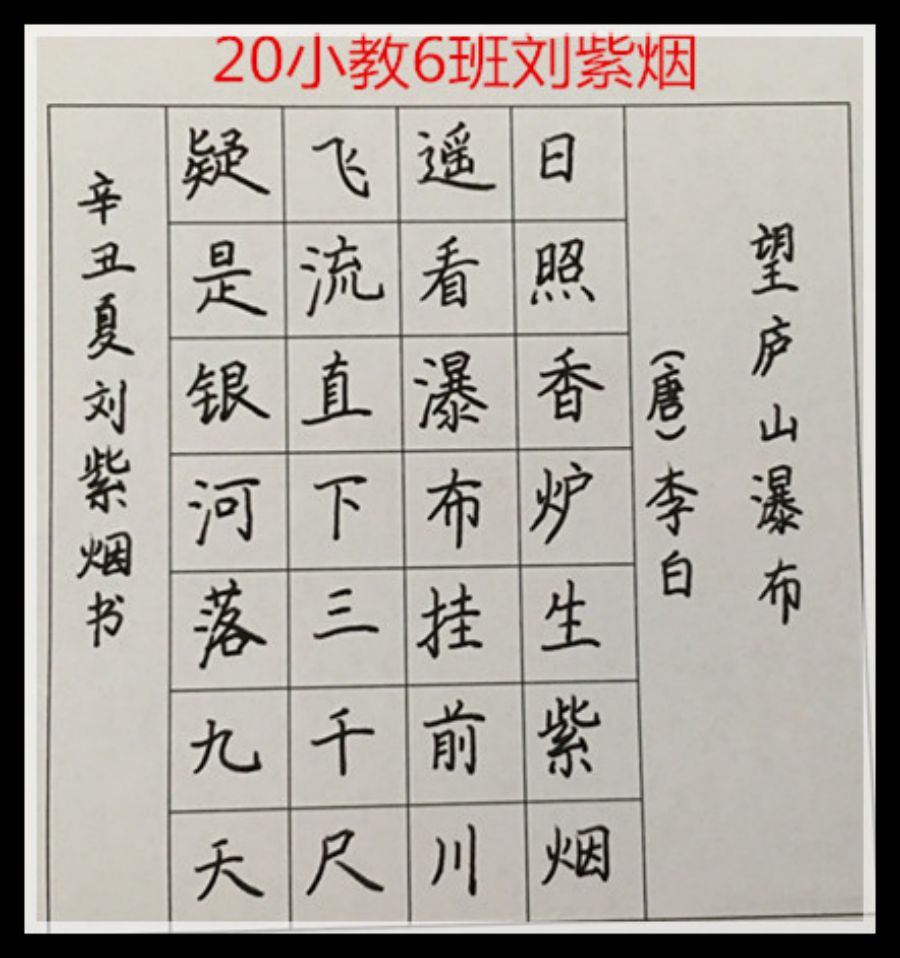 20小教6班刘紫烟
望庐山瀑布
(唐)李白
日照香炉生紫烟
遥看瀑布挂前川
飞流直下三千尺
疑是银河落九天
辛丑夏刘紫烟书